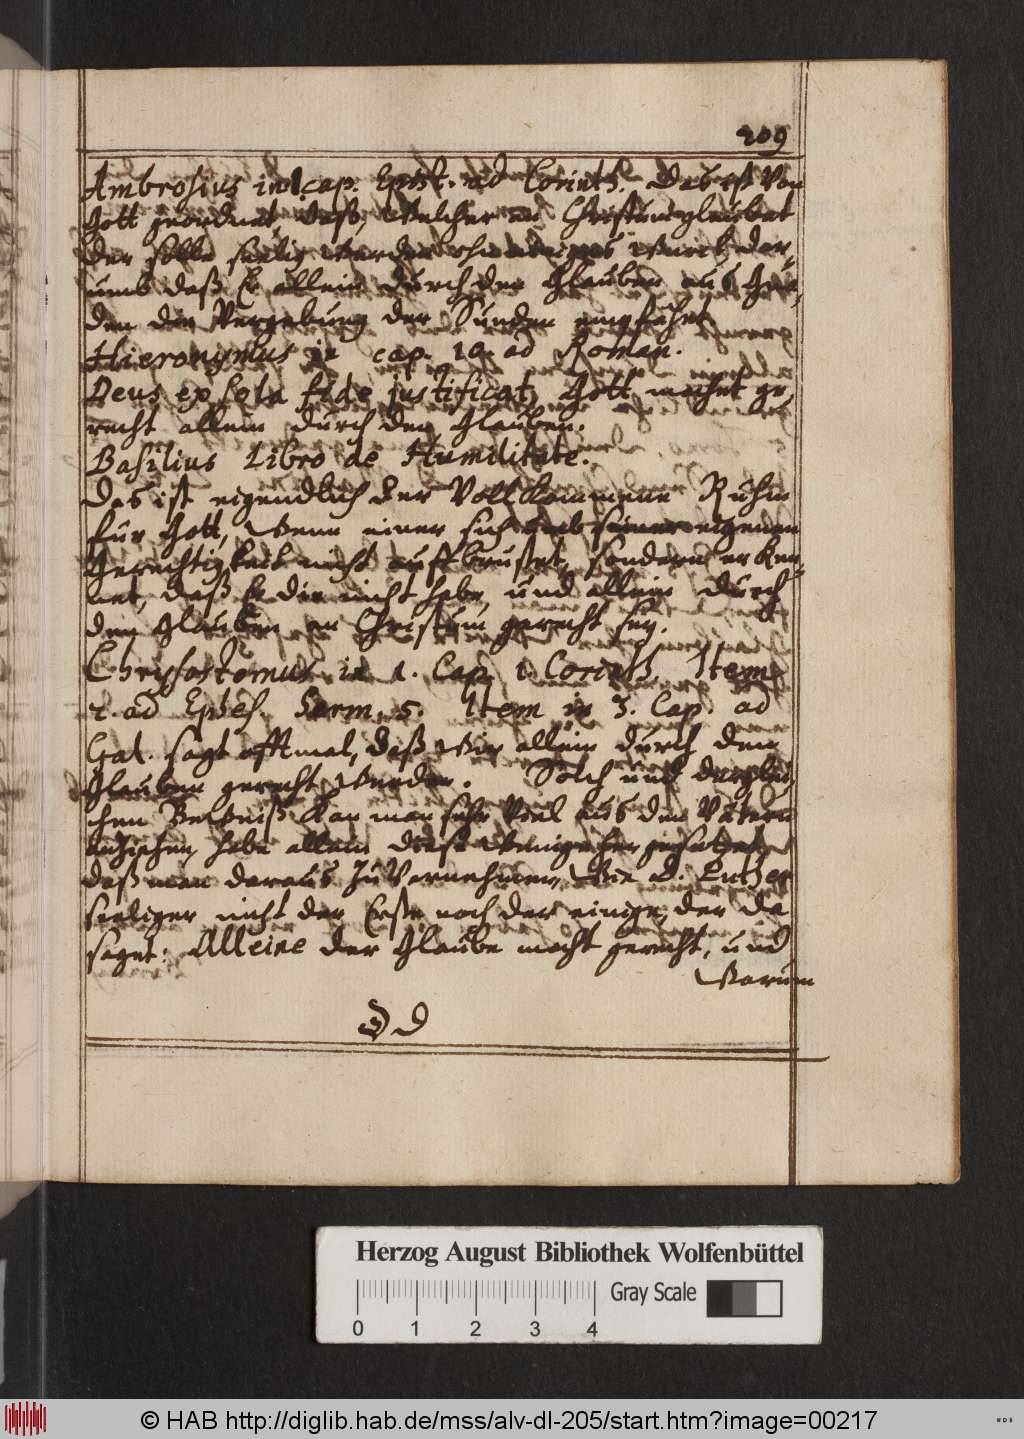 209
Ambrosius in 1 cap. Epist. ad Corinth. Das ist von
Gott geordnet, daß, welcher an Christum glaubet
der solle seelig werden ohn einiges Werck dar„
umb daß Er allein durch den Glauben aus Gna„
den die Vergebung der Sünden empfähet
Hieronymus in cap. 10. ad Roman.
Deus ex sola fide justificat, Gott machet ge„
recht allein durch den Glauben.
Basilius Libro de Humilitate.
Das ist eigendlich der Vollkommene Ruhm
für Gott, Wenn einer sich umb seiner eigenen
Gerechtigkeit nicht auffbrüstet, sondern erken„
net, daß Er die nicht habe, und allein durch
den Glauben an Christum gerecht sey.
Chrysostomus in 1. Cap. 1. Corinth. Item
2. ad Ephes. Serm. 5. Item in 3. Cap. ad
Gal. sagt offtmal, daß wir allein durch den
Glauben gerecht werden. Solch und derglei„
chen Zeugniß kan man sehr viel aus den Vätern
anziehen, habe allein diese wenige her gesetzet
daß man daraus zu vernehmen, Wie D. Luther
seeliger nicht der Erste noch der einige, der da
saget: Alleine der Glaube macht gerecht, und
Warum
Dd
Herzog August Bibliothek Wolfenbüttel
Gray Scale
0 1 2 3 4
© HAB http://diglib.hab.de/mss/alv-dl-205/start.htm?image=00217